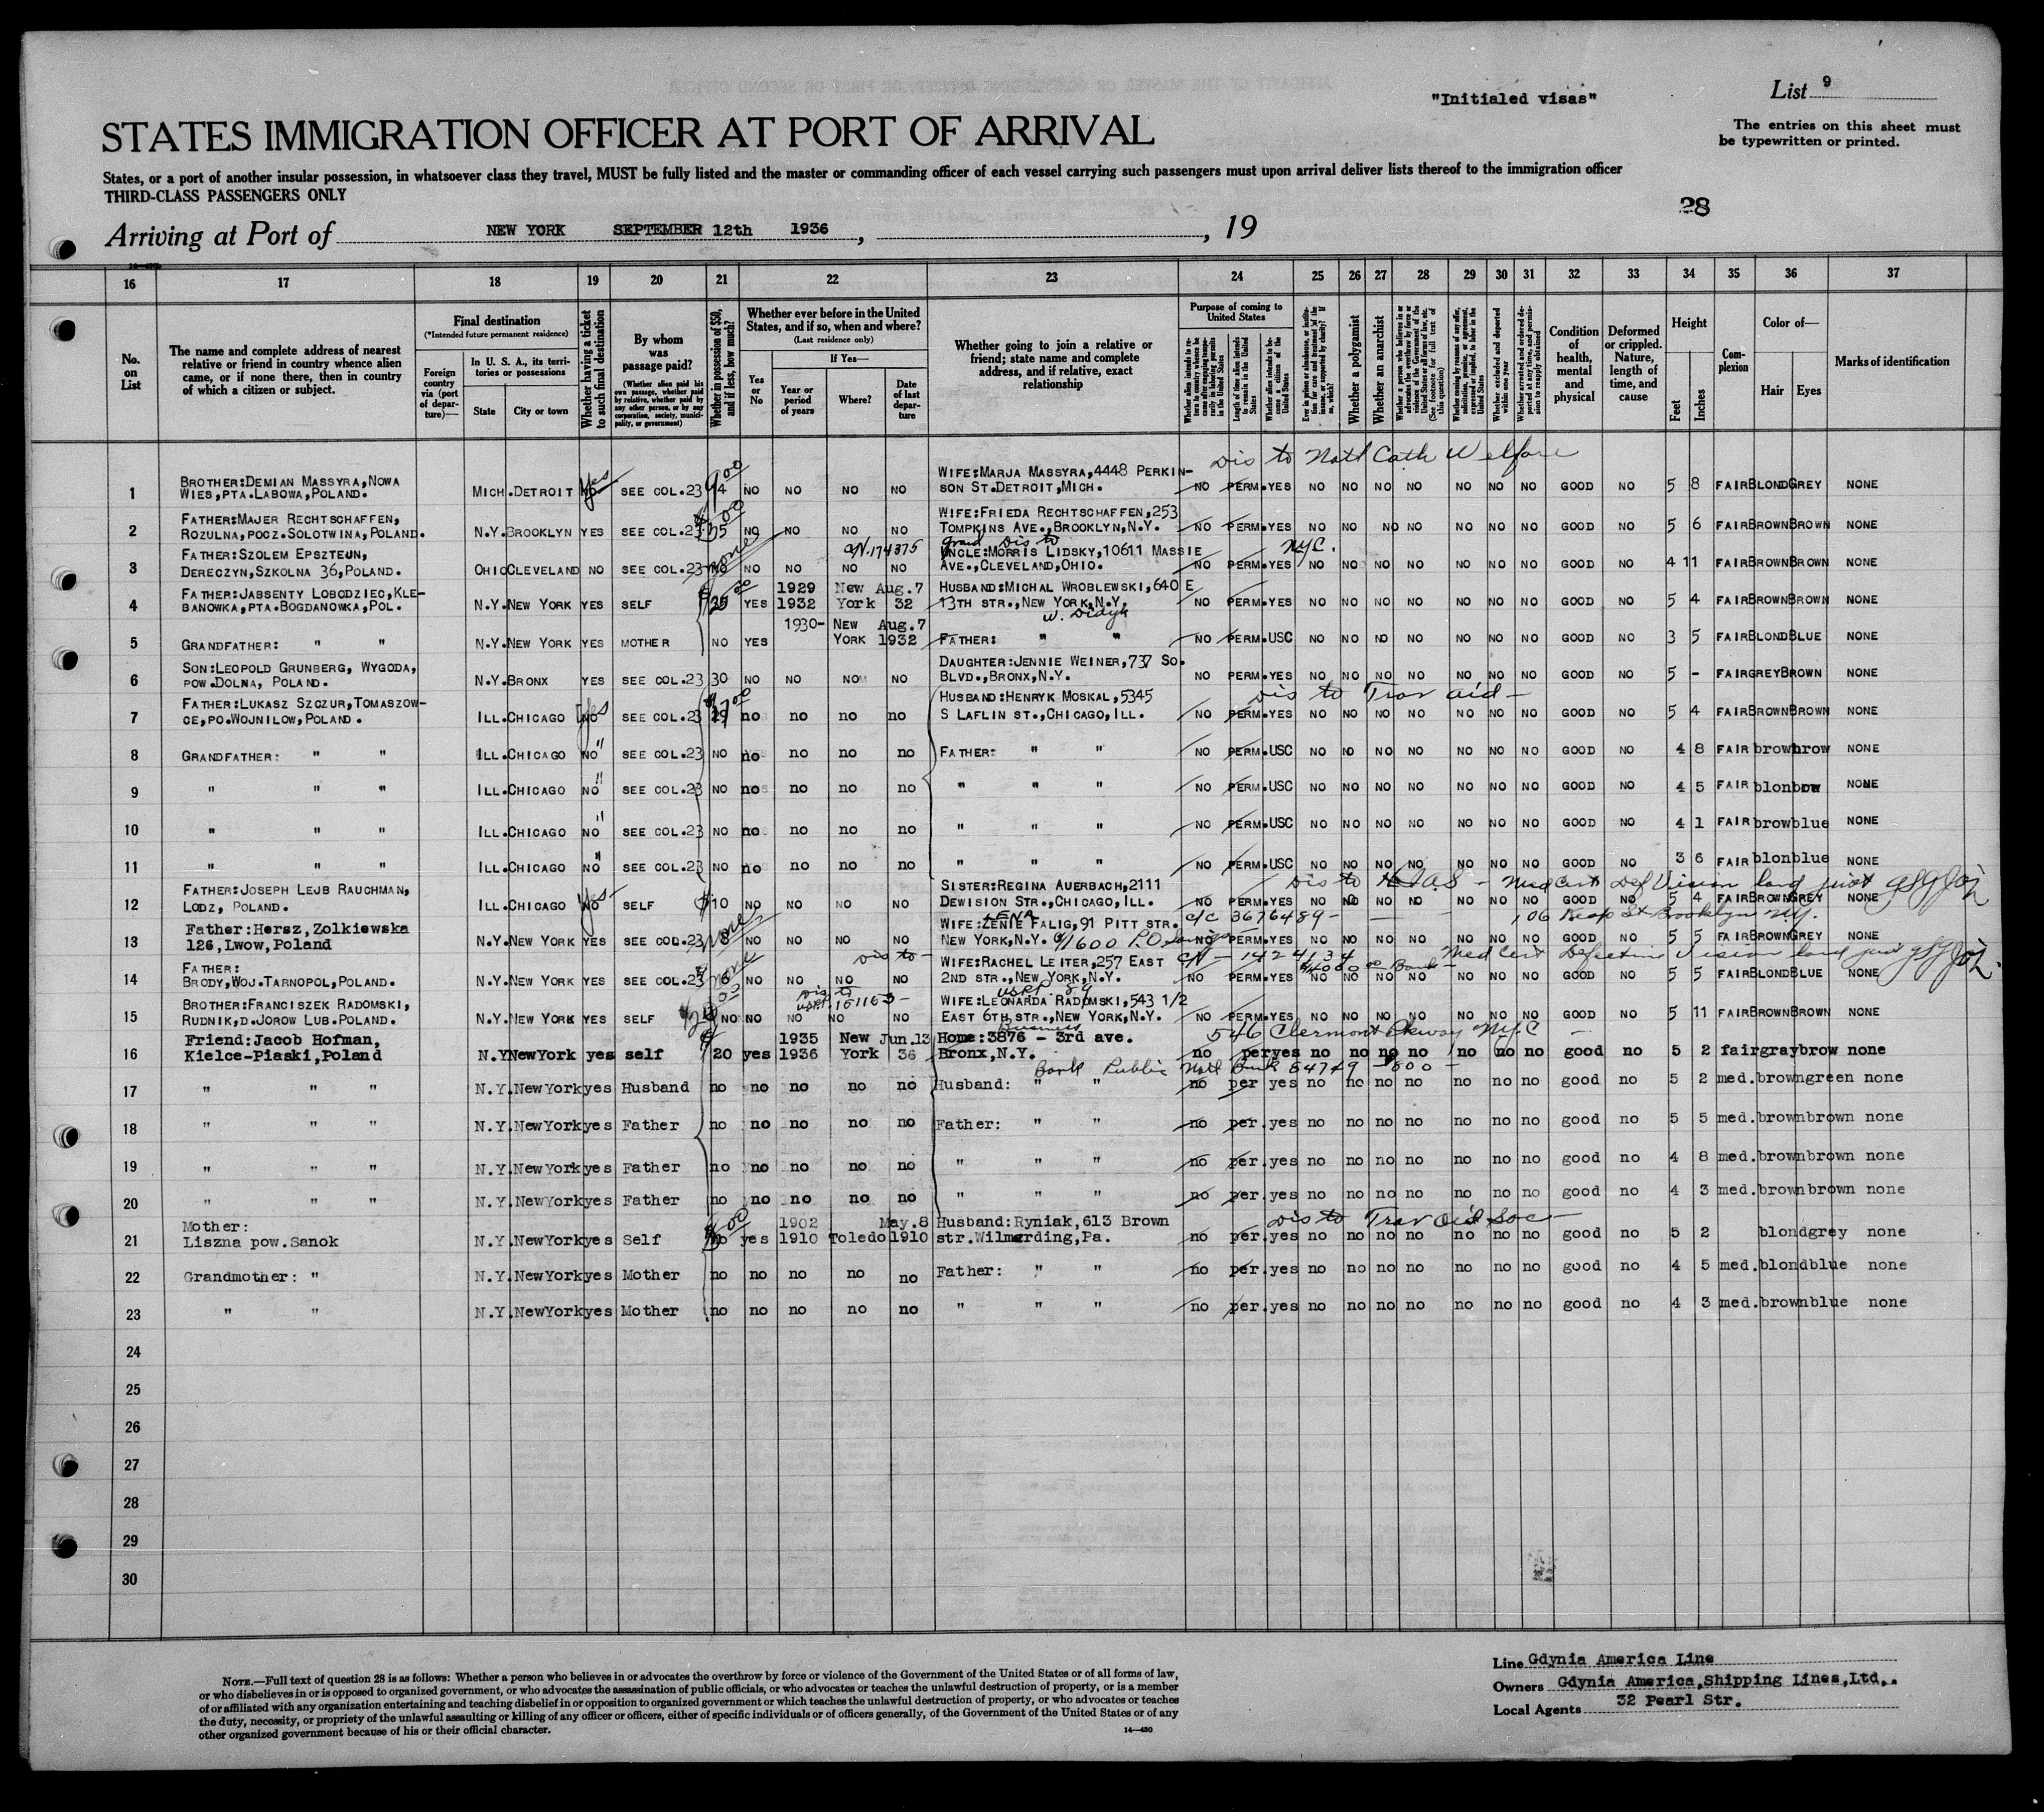 "Initialed visas"
List 9
STATES IMMIGRATION OFFICER AT PORT OF ARRIVAL
The entries on this sheet must
be typewritten or printed.
States, or a port of another insular possession, in whatsoever class they travel, MUST be fully listed and the master or commanding officer of each vessel carrying such passengers must upon arrival deliver lists thereof to the immigration officer
THIRD-CLASS PASSENGERS ONLY
28
Arriving at Port of NEW YORK SEPTEMBER 12th 1936, , 19
16 17 18 19 20 21 22 23 24 25 26 27 28 29 30 31 32 33 34 35 36 37
No. on List
The name and complete address of nearest relative or friend in country whence alien came, or if none there, then in country of which a citizen or subject.
Final destination
(*Intended future permanent residence)
Foreign country via (port of departure)—
In U. S. A., its territories or possessions
State
City or town
Whether having a ticket to such final destination
By whom was passage paid?
(Whether alien paid his own passage, whether paid by relative, whether paid by any other person, or by any corporation, society, municipality, or government)
Whether in possession of $50, and if less, how much?
Whether ever before in the United States, and if so, when and where?
(Last residence only)
Yes or No
If Yes—
Year or period of years
Where?
Date of last departure
Whether going to join a relative or friend; state name and complete address, and if relative, exact relationship
Purpose of coming to United States
Length of time alien intends to remain in the United States
Whether alien intends to become a citizen of the United States
Whether a polygamist
Whether an anarchist
Condition of health, mental and physical
Deformed or crippled. Nature, length of time, and cause
Height
Feet
Inches
Complexion
Color of—
Hair
Eyes
Marks of identification
Dis to Natl Cath Welfare
1 BROTHER:DEMIAN MASSYRA,NOWA WIES,PTA.LABOWA,POLAND. MICH.DETROIT NO Yes SEE COL.23 14 NO NO NO NO WIFE:MARJA MASSYRA,4448 PERKINSON ST.DETROIT,MICH. NO PERM.YES NO NO NO NO NO NO NO GOOD NO 5 8 FAIR BLOND GREY NONE
2 FATHER:MAJER RECHTSCHAFFEN, ROZULNA,POCZ.SOLOTWINA,POLAND. N.Y.BROOKLYN YES SEE COL.23 NO NO NO NO WIFE:FRIEDA RECHTSCHAFFEN,253 TOMPKINS AVE.,BROOKLYN,N.Y. NO PERM.YES NO NO NO NO NO NO NO GOOD NO 5 6 FAIR BROWN BROWN NONE
3 FATHER:SZOLEM EPSZTEJN, DERECZYN,SZKOLNA 36,POLAND. OHIO CLEVELAND NO SEE COL.23 NO NO NO NO grand dis to UNCLE:MORRIS LIDSKY,10611 MASSIE AVE.,CLEVELAND,OHIO. NYC. NO PERM.YES NO NO NO NO NO NO NO GOOD NO 4 11 FAIR BROWN BROWN NONE
4 FATHER:JABSENTY LOBODZIEC,KLEBANOWKA,PTA.BOGDANOWKA,POL. N.Y.NEW YORK YES SELF 25 YES 1929 1932 New York Aug.7 32 HUSBAND:MICHAL WROBLEWSKI,640 E 13TH STR.,NEW YORK,N.Y. NO PERM.YES NO NO NO NO NO NO NO GOOD NO 5 4 FAIR BROWN BROWN NONE
5 GRANDFATHER: " " N.Y.NEW YORK YES MOTHER NO YES 1930- NEW YORK Aug.7 1932 FATHER: " " NO PERM.USC NO NO NO NO NO NO NO GOOD NO 3 5 FAIR BLOND BLUE NONE
6 SON:LEOPOLD GRUNBERG, WYGODA, POW.DOLNA, POLAND. N.Y.BRONX YES SEE COL.23 30 NO NO NO NO DAUGHTER:JENNIE WEINER,737 SO. BLVD.,BRONX,N.Y. NO PERM.YES NO NO NO NO NO NO NO GOOD NO 5 - FAIR GREY BROWN NONE
Dis to Trav aid—
7 FATHER:LUKASZ SZCZUR,TOMASZOWCE,PO.WOJNILOW,POLAND. ILL.CHICAGO NO Yes SEE COL.23 no no no no HUSBAND:HENRYK MOSKAL,5345 S LAFLIN ST.,CHICAGO,ILL. NO PERM.YES NO NO NO NO NO NO NO GOOD NO 5 4 FAIR BROWN BROWN NONE
8 GRANDFATHER: " " ILL.CHICAGO NO " SEE COL.23 NO no no no no FATHER: " " NO PERM.USC NO NO NO NO NO NO NO GOOD NO 4 8 FAIR brow brow NONE
9 " " " ILL.CHICAGO NO " SEE COL.23 NO no no no no " " " NO PERM.USC NO NO NO NO NO NO NO GOOD NO 4 5 FAIR blon NONE
10 " " " ILL.CHICAGO NO " SEE COL.23 NO no no no no " " " NO PERM.USC NO NO NO NO NO NO NO GOOD NO 4 1 FAIR brow blue NONE
11 " " " ILL.CHICAGO NO " SEE COL.23 NO no no no no " " " NO PERM.USC NO NO NO NO NO NO NO GOOD NO 3 6 FAIR blon blue NONE
Dis to HIAS - Med Cert Def Vision
12 FATHER:JOSEPH LEJB RAUCHMAN, LODZ, POLAND. ILL.CHICAGO NO Yes SELF $10 NO NO NO NO SISTER:REGINA AUERBACH,2111 DEWISION STR.,CHICAGO,ILL. NO PERM.YES NO NO NO NO NO NO NO GOOD NO 5 4 FAIR BROWN GREY NONE
c/c 3676489- Brooklyn N.Y.
13 Father:Hersz,Zolkiewska 126,Lwow,Poland N.Y.NEW YORK YES SEE COL.23 none NO NO NO NO WIFE:ZENIE LENA FALIG,91 PITT STR. NEW YORK,N.Y. NO PERM.YES NO NO NO NO NO NO NO GOOD NO 5 5 FAIR BROWN GREY NONE
Med Cert Defective Vision
14 FATHER: BRODY,WOJ.TARNOPOL,POLAND. N.Y.NEW YORK YES SEE COL.23 6 none NO NO NO NO dis to- WIFE:RACHEL LEITER,257 EAST 2ND STR.,NEW YORK,N.Y. NO PERM YES NO NO NO NO NO NO NO GOOD NO 5 5 FAIR BLOND BLUE NONE
15 BROTHER:FRANCISZEK RADOMSKI, RUDNIK,D.JOROW LUB.POLAND. N.Y.NEW YORK YES SELF NO NO NO NO NO WIFE:LEONARDA RADOMSKI,543 1/2 EAST 6TH STR.,NEW YORK,N.Y. NO PERM.YES NO NO NO NO NO NO NO GOOD NO 5 11 FAIR BROWN BROWN NONE
546 Clermont Pkway NYC
16 Friend:Jacob Hofman, Kielce-Piaski,Poland N.Y NewYork yes self 20 yes 1935 1936 New York Jun.13 36 Business Home:3876 - 3rd ave. Bronx,N.Y. no per yes no no no no no no no good no 5 2 fair gray brow none
Bank Public Natl Bank
17 " " " N.Y.NewYork yes Husband no no no no no Husband: " " no per yes no no no no no no no good no 5 2 med. brown green none
18 " " " N.Y.NewYork yes Father no no no no no Father: " " no per.yes no no no no no no no good no 5 5 med. brown brown none
19 " " " N.Y.NewYork yes Father no no no no no " " " no per.yes no no no no no no no good no 4 8 med. brown brown none
20 " " " N.Y.NewYork yes Father no no no no no " " " no per.yes no no no no no no no good no 4 3 med. brown brown none
Dis to Trav aid Soc—
21 Mother: Liszna pow.Sanok N.Y.NewYork yes Self no yes 1902 1910 Toledo May.8 1910 Husband:Ryniak,613 Brown str.Wilmerding,Pa. no per.yes no no no no no no no good no 5 2 blond grey none
22 Grandmother: " N.Y.NewYork yes Mother no no no no no Father: " " no per.yes no no no no no no no good no 4 5 med. blond blue none
23 " " N.Y.NewYork yes Mother no no no no no " " " no per.yes no no no no no no no good no 4 3 med. brown blue none
24
25
26
27
28
29
30
NOTE.—Full text of question 28 is as follows: Whether a person who believes in or advocates the overthrow by force or violence of the Government of the United States or of all forms of law,
or who disbelieves in or is opposed to organized government, or who advocates the assassination of public officials, or who advocates or teaches the unlawful destruction of property, or is a member
of or affiliated with any organization entertaining and teaching disbelief in or opposition to organized government or which teaches the unlawful destruction of property, or who advocates or teaches
the duty, necessity, or propriety of the unlawful assaulting or killing of any officer or officers, either of specific individuals or of officers generally, of the Government of the United States or of any
other organized government because of his or their official character.
14—430
Line Gdynia America Line
Owners Gdynia America,Shipping Lines,Ltd..
Local Agents 32 Pearl Str.